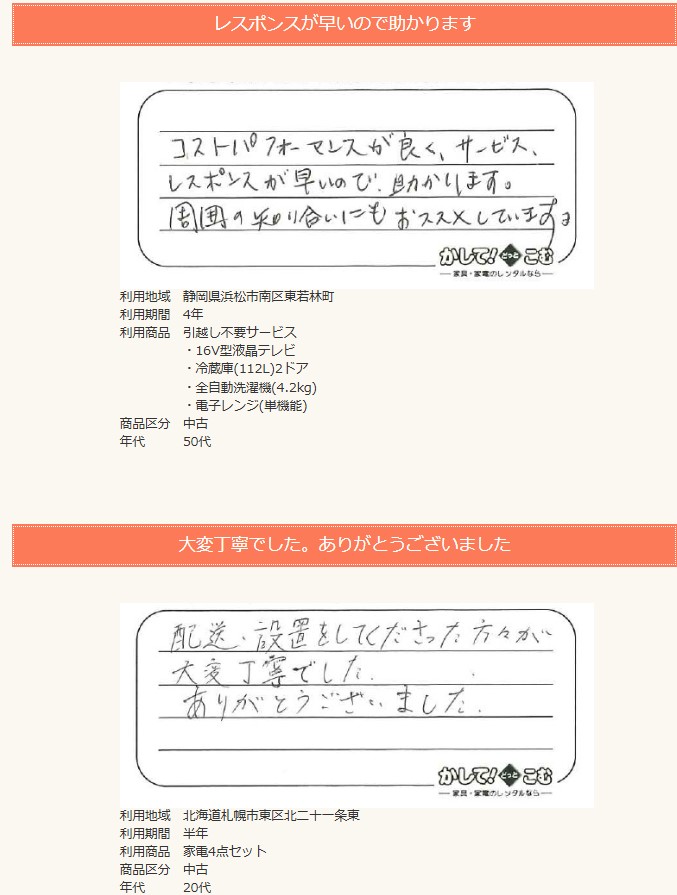 レスポンスが早いので助かります
コストパフォーマンスが良く、サービス、
レスポンスが早いので、助かります。
周囲の知り合いにもおススメしています。
かして!どっとこむ
家具・家電のレンタルなら
利用地域 静岡県浜松市南区東若林町
利用期間 4年
利用商品 引越し不要サービス
・16V型液晶テレビ
・冷蔵庫(112L)2ドア
・全自動洗濯機(4.2kg)
・電子レンジ(単機能)
商品区分 中古
年代 50代
大変丁寧でした。ありがとうございました
配送・設置をしてくださった方々が
大変丁寧でした。
ありがとうございました。
かして!どっとこむ
家具・家電のレンタルなら
利用地域 北海道札幌市東区北二十一条東
利用期間 半年
利用商品 家電4点セット
商品区分 中古
年代 20代